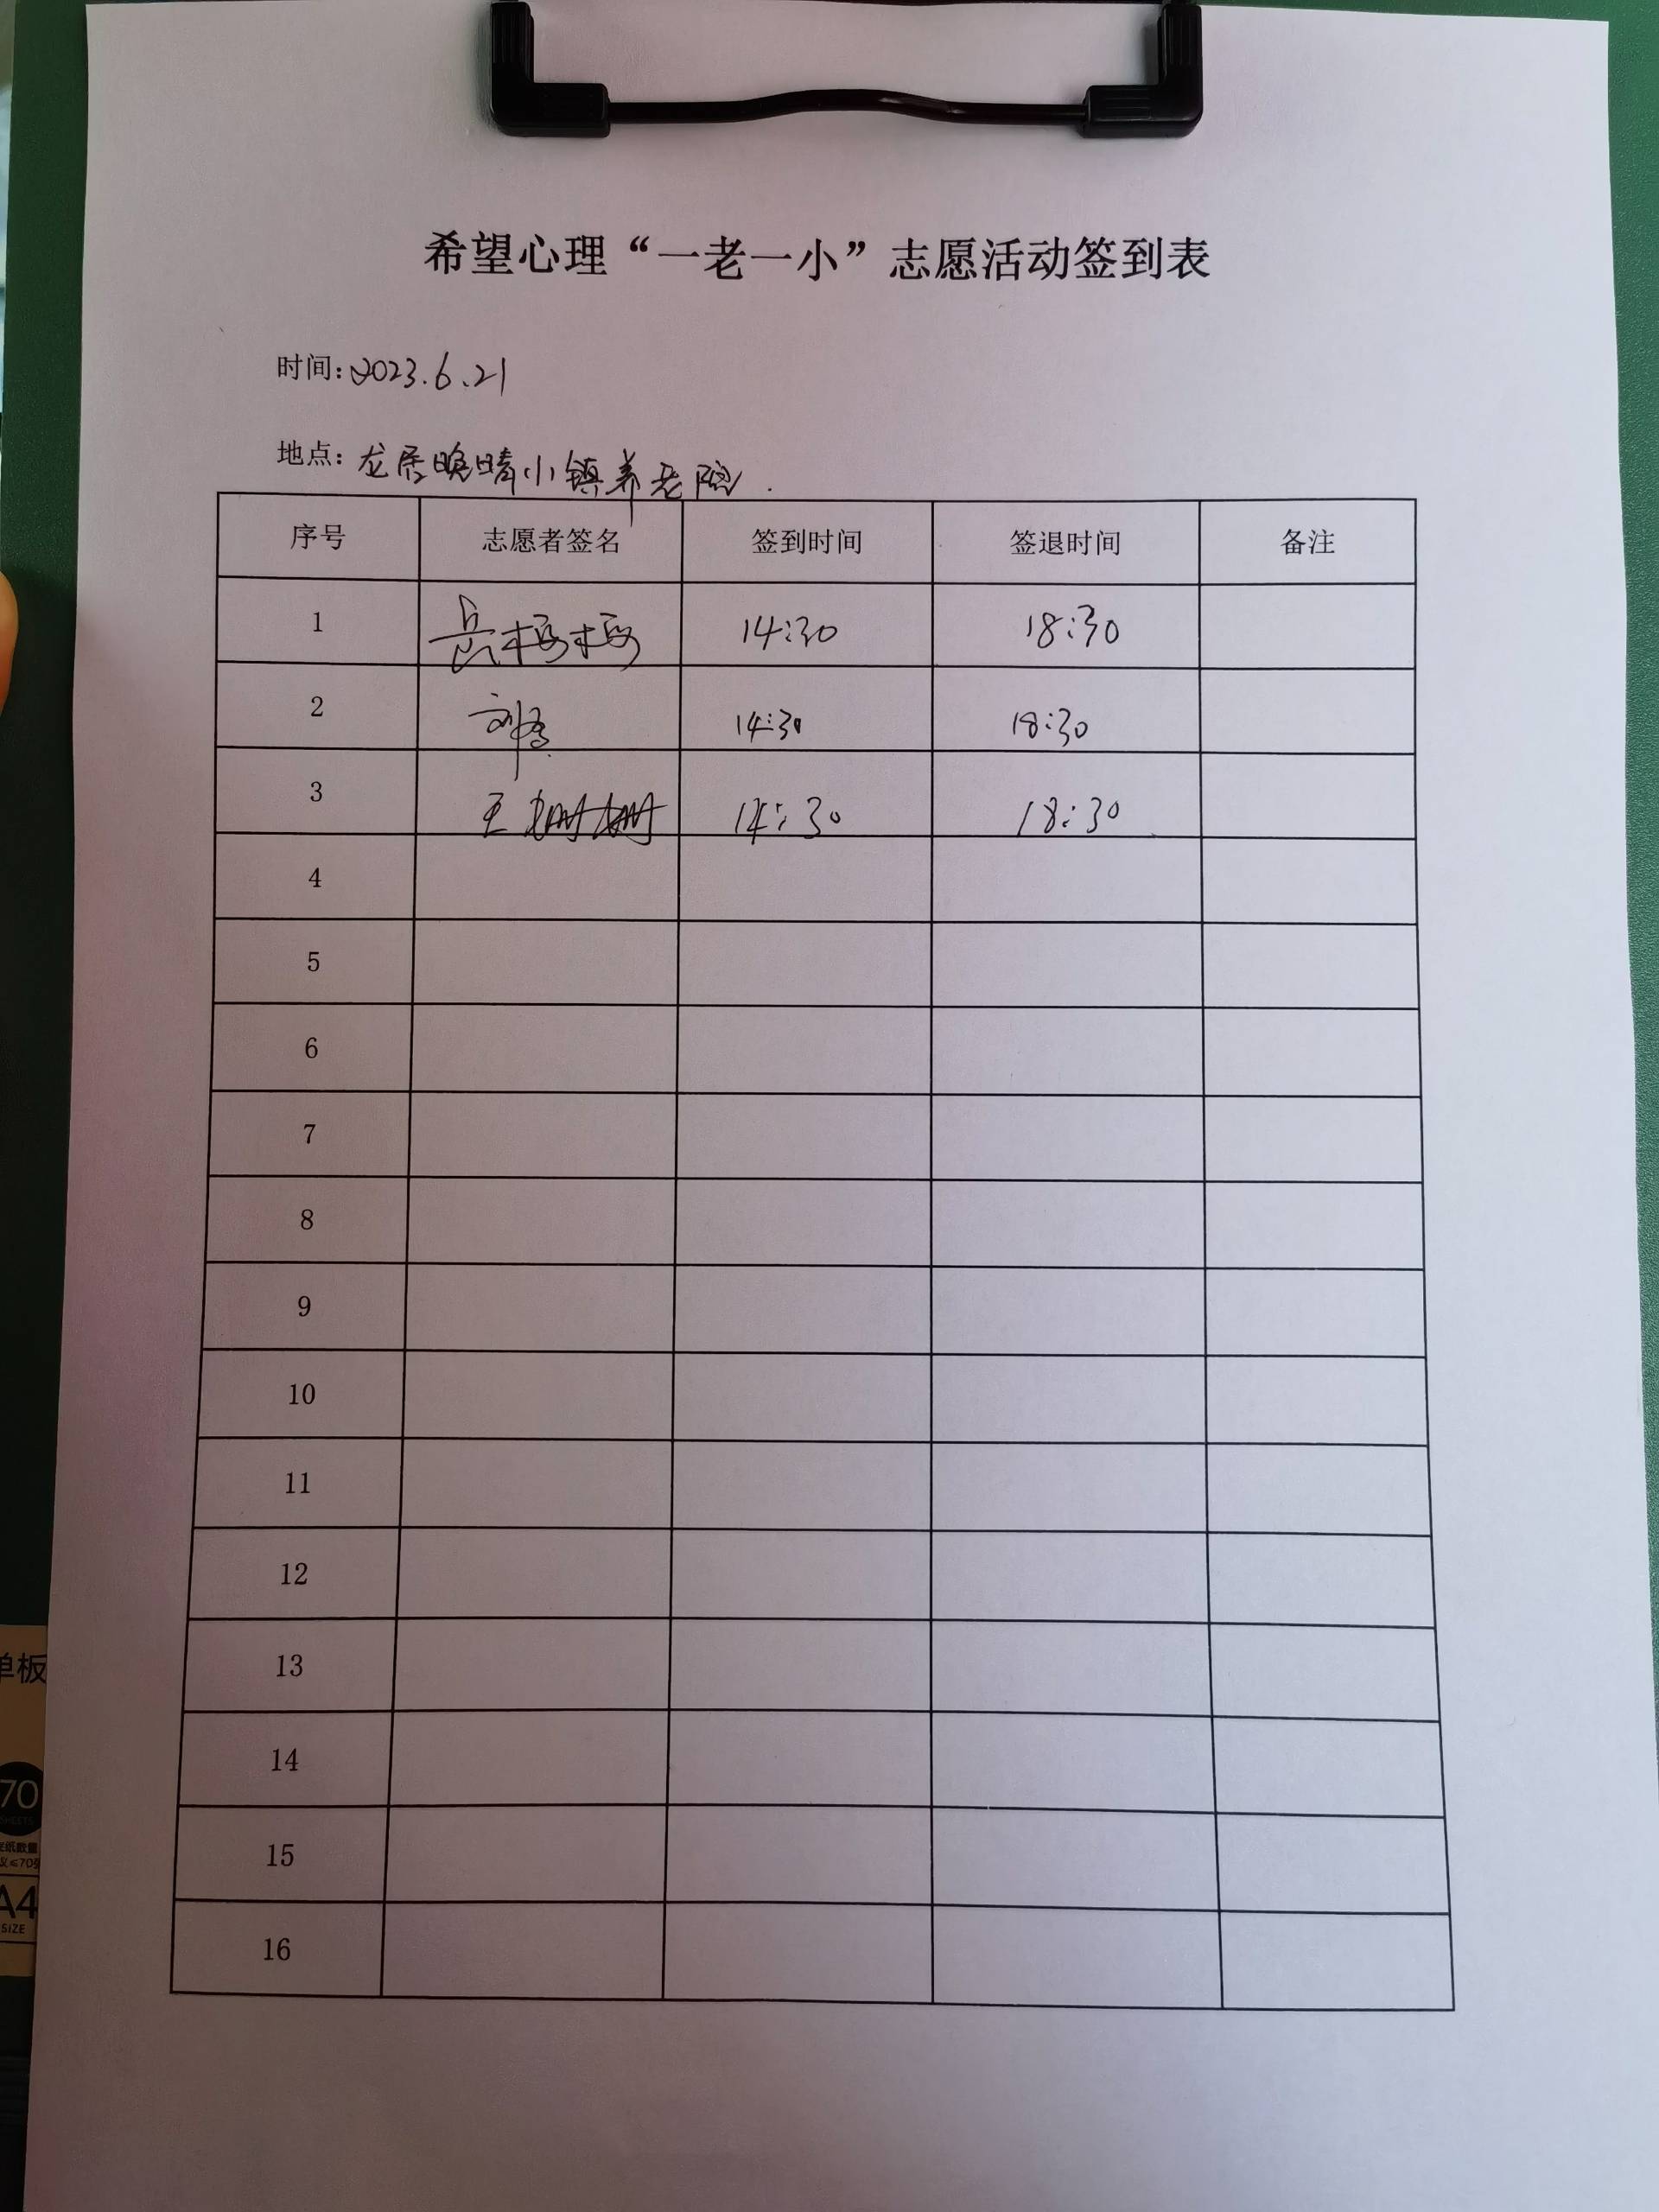 希望心理“一老一小”志愿活动签到表
时间:2023.6.21
地点:龙居晚晴小镇养老院.
序号 志愿者签名 签到时间 签退时间 备注
1 14:30 18:30
2 刘 14:30 18:30
3 王姗姗 14:30 18:30
4
5
6
7
8
9
10
11
12
13
14
15
16
单板
70
SHEETS
A4
SIZE